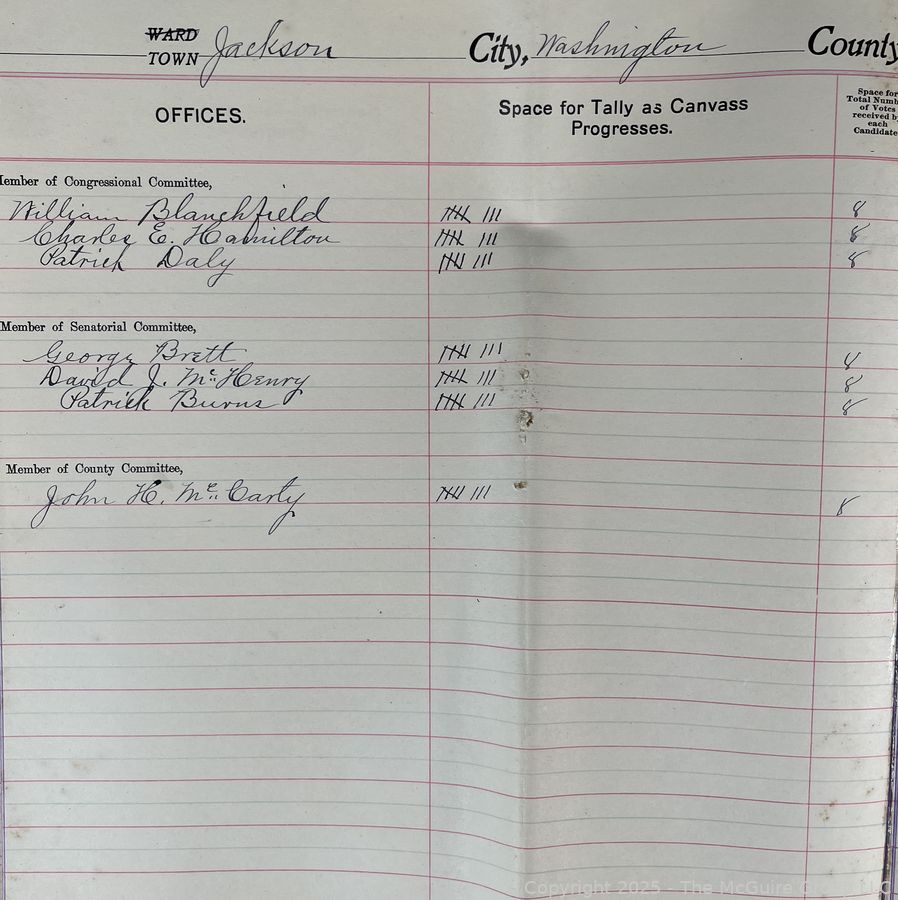 WARD
TOWN Jackson City, Washington County
OFFICES.
Space for Tally as Canvass
Progresses.
Space for
Total Numb
of Votes
received by
each
Candidate
Member of Congressional Committee,
William Blanchfield 𝍸 III 8
Charles E. Hamilton 𝍸 III 8
Patrick Daly 𝍸 III 8
Member of Senatorial Committee,
George Brett 𝍸 III 8
David J. Mc Henry 𝍸 III 8
Patrick Burns 𝍸 III 8
Member of County Committee,
John H. Mc Carty 𝍸 III 8
Copyright 2025 - The McGuire Group LLC